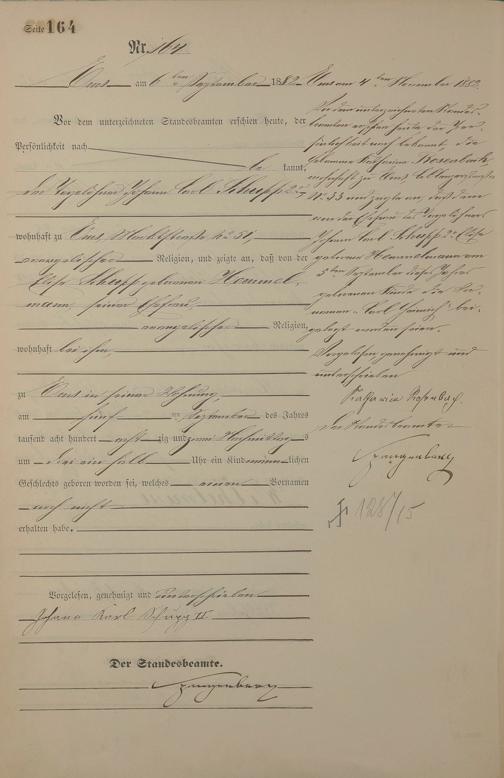 Seite 164
Nr. 164
Ems am 6ten September 1882
Vor dem unterzeichneten Standesbeamten erschien heute, der
Persönlichkeit nach
be kannt,
der Johann Carl Schupp 2ter
wohnhaft zu Ems, Marktstraße No 51,
evangelischer Religion, und zeigte an, daß von der
Elise Schupp geborenen Hemmel-
mann, seiner Ehefrau,
evangelischer Religion,
wohnhaft bei ihm,
zu Ems in seiner Wohnung
am fünften September des Jahres
tausend acht hundert acht zig und zwei Nachmittags
um drei ein halb Uhr ein Kind männlichen
Geschlechts geboren worden sei, welches einen Vornamen
noch nicht
erhalten habe.
Vorgelesen, genehmigt und unterschrieben
Johann Karl Schupp II
Der Standesbeamte.
Spangenberg
Ems am 4ten November 1882.
Vor dem unterzeichneten Standes-
beamten erschien heute, der Per-
sönlichkeit nach bekannt, die
Katharina Rosenbach
wohnhaft zu Ems
No 33 und zeigte an, daß dem
von der Ehefrau des
Johann Carl Schupp 2ter Elise
geborene Hemmelmann am
5ten September dieses Jahres
geborenen Kinde die Vor-
namen "Carl Heinrich" bei-
gelegt worden seien.
Vorgelesen, genehmigt und
unterschrieben
Katharina Rosenbach
Der Standesbeamte
Spangenberg
128/15